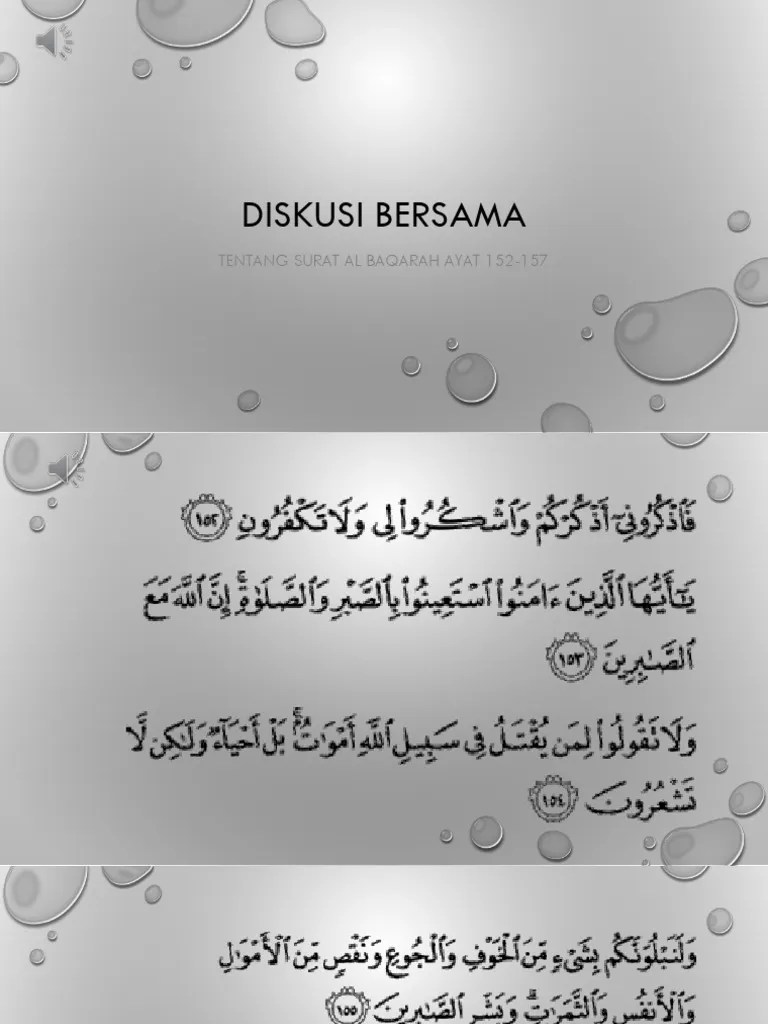 DISKUSI BERSAMA
TENTANG SURAT AL BAQARAH AYAT 152-157
فَٱذْكُرُونِىٓ أَذْكُرْكُمْ وَٱشْكُرُوا۟ لِى وَلَا تَكْفُرُونِ ١٥٢
يَـٰٓأَيُّهَا ٱلَّذِينَ ءَامَنُوا۟ ٱسْتَعِينُوا۟ بِٱلصَّبْرِ وَٱلصَّلَوٰةِ ۚ إِنَّ ٱللَّهَ مَعَ
ٱلصَّـٰبِرِينَ ١٥٣
وَلَا تَقُولُوا۟ لِمَن يُقْتَلُ فِى سَبِيلِ ٱللَّهِ أَمْوَٰتٌۢ ۚ بَلْ أَحْيَآءٌ وَلَـٰكِن لَّا
تَشْعُرُونَ ١٥٤
وَلَنَبْلُوَنَّكُم بِشَىْءٍ مِّنَ ٱلْخَوْفِ وَٱلْجُوعِ وَنَقْصٍ مِّنَ ٱلْأَمْوَٰلِ
وَٱلْأَنفُسِ وَٱلثَّمَرَٰتِ ۗ وَبَشِّرِ ٱلصَّـٰبِرِينَ ١٥٥